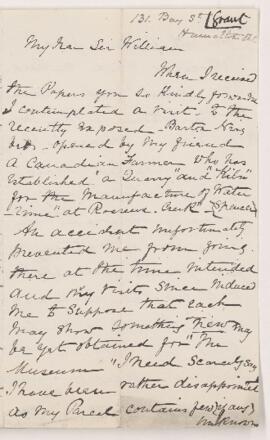 131. Bay St (Grant
Hamilton
My Dear Sir William
When I received
the Papers you so kindly forwarded
I contemplated a visit to the
recently exposed Barton
beds opened by My friend
a Canadian Farmer who has
Established a "Quarry" and "Kiln"
for the Manufacture of Water
"Lime" at Rosseaux Creek
An accident unfortunately
prevented me from going
there at the time intended
and My visits since induced
me to suppose that each
May show something new may
be yet obtained for "The
Museum "I need scarcely say
I have been rather disappointed
as My Parcel contains few if any
unknown